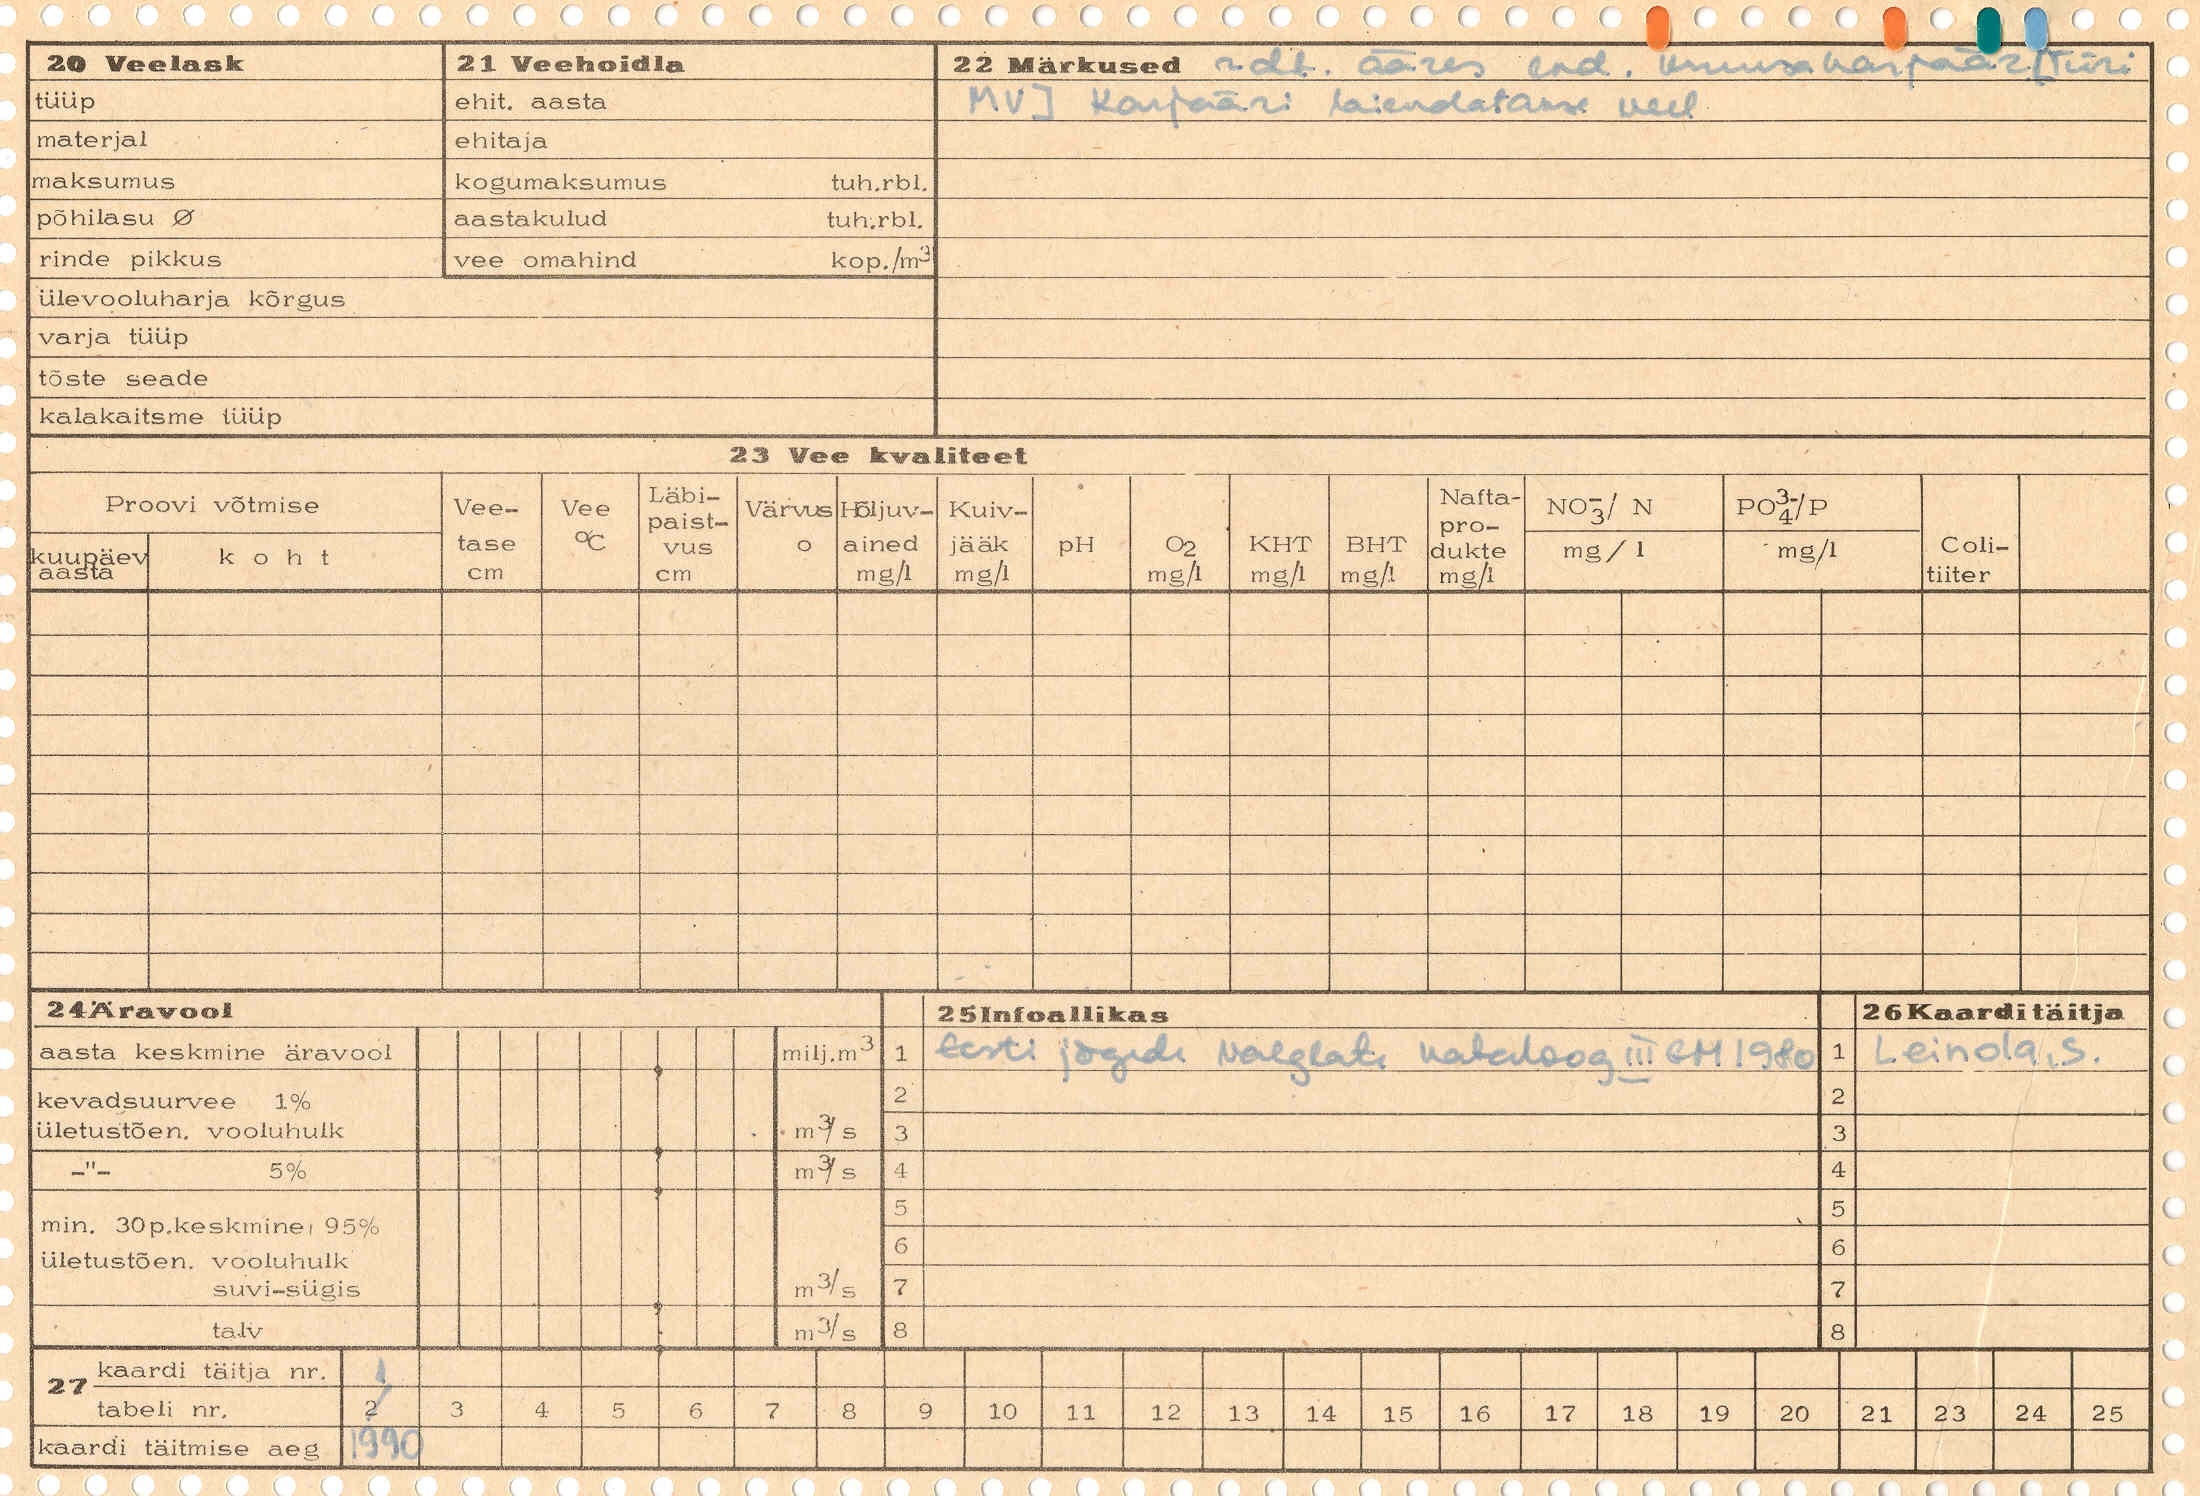 20 Veelask
tüüp
materjal
maksumus
põhilasu Ø
rinde pikkus
ülevooluharja kõrgus
varja tüüp
tõste seade
kalakaitsme tüüp
21 Veehoidla
ehit. aasta
ehitaja
kogumaksumus tuh.rbl.
aastakulud tuh.rbl.
vee omahind kop./m³
22 Märkused rdt. ääres end. kruusakarjäär [Türi
MV] Karjääri laiendatakse veel
23 Vee kvaliteet
Proovi võtmise
kuupäev aasta
koht
Vee-tase cm
Vee °C
Läbi-paist-vus cm
Värvus o
Hõljuv-ained mg/l
Kuiv-jääk mg/l
pH
O2 mg/l
KHT mg/l
BHT mg/l
Nafta-pro-dukte mg/l
NO3⁻/ N mg/l
PO4³⁻/P mg/l
Coli-tiiter
24 Äravool
aasta keskmine äravool milj.m³
kevadsuurvee 1%
ületustõen. vooluhulk m³/s
-"- 5% m³/s
min. 30p.keskmine, 95%
ületustõen. vooluhulk
suvi-sügis m³/s
talv m³/s
25 Infoallikas
1 Eesti jõgede valglate kataloog III EM 1980
2
3
4
5
6
7
8
26 Kaarditäitja
1 Leinola, S.
2
3
4
5
6
7
8
27 kaardi täitja nr. 1
tabeli nr. 2 3 4 5 6 7 8 9 10 11 12 13 14 15 16 17 18 19 20 21 23 24 25
kaardi täitmise aeg 1990